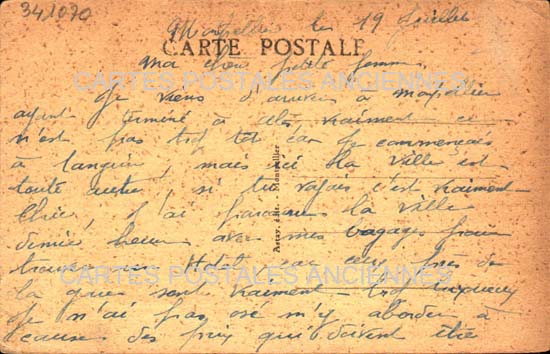 341070
Montpellier le 19 Juillet
CARTE POSTALE
Ma chère petite femme,
CARTES POSTALES ANCIENNES
Je viens d'arriver à Montpellier
ayant terminé à vraiment ce
n'est pas trop tôt car je commençais
à languir, mais ici la ville est
toute autre, si tu voyais c'est vraiment
chic, j'ai parcouru la ville
demie heure avec mes bagages pour
trouver un Hotel car ceux près de
CARTES POSTALES ANCIENNES
la gare sont vraiment trop luxueux
Je n'ai pas osé m'y aborder à
causes des prix qui doivent être
Montpellier